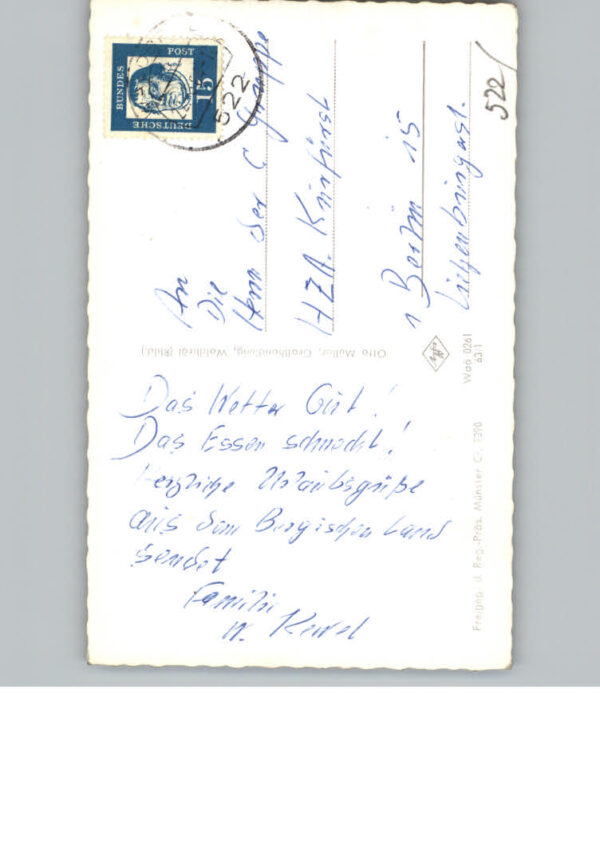 Das Wetter Gut!
Das Essen schmeckt!
Herzliche Urlaubsgrüße
aus dem Bergischen Land
sendet
Familie
An
Die
Herrn der C Gruppe
HZA. Kurfürst
1 Berlin 15
Lietzenburgerst.
522
DEUTSCHE
BUNDES
POST
15
522
Otto Müller, Großhandlung, Waldbröl (Rhld.)
Agfa
Wao 0261
63 1
Freigep. d. Reg.-Präs. Münster C. 1390